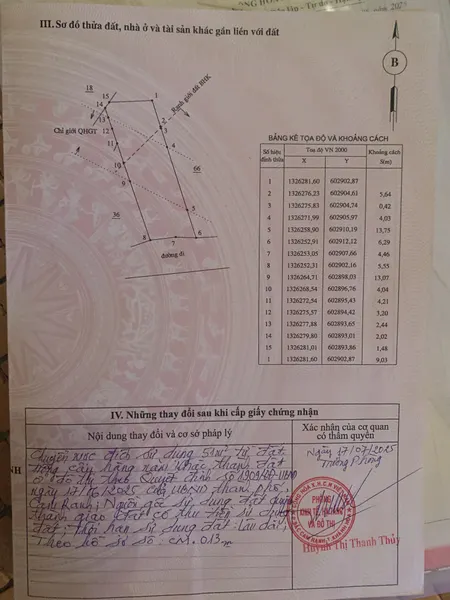 III. Sơ đồ thửa đất, nhà ở và tài sản khác gắn liền với đất
B
18
15
1
14
13
12
11
10
9
8
7
6
5
4
3
2
Ranh giới đất BHK
Chỉ giới QHGT
66
36
đường đi
BẢNG KÊ TỌA ĐỘ VÀ KHOẢNG CÁCH
Số hiệu đỉnh thửa Tọa độ VN 2000 Khoảng cách
X Y S(m)
1 1326281,60 602902,87
2 1326276,23 602904,61 5,64
3 1326275,83 602904,74 0,42
4 1326271,99 602905,97 4,03
5 1326258,90 602910,19 13,75
6 1326252,91 602912,12 6,29
7 1326253,05 602907,66 4,46
8 1326252,31 602902,16 5,55
9 1326264,71 602898,03 13,07
10 1326268,54 602896,76 4,04
11 1326272,54 602895,43 4,21
12 1326275,57 602894,42 3,20
13 1326277,88 602893,65 2,44
14 1326279,80 602893,01 2,02
15 1326281,01 602893,86 1,48
1 1326281,60 602902,87 9,03
IV. Những thay đổi sau khi cấp giấy chứng nhận
Nội dung thay đổi và cơ sở pháp lý
Xác nhận của cơ quan có thẩm quyền
Chuyển mục đích sử dụng từ đất
trồng cây hàng năm khác thành đất
ở đô thị theo Quyết định số
ngày 17/06/2025 của UBND thành phố
Cam Ranh; Nguồn gốc sử dụng đất: được
giao đất có thu tiền sử dụng
đất; thời hạn sử dụng đất: Lâu dài;
Theo hồ sơ số: CM.013
Ngày 17/07/2025
Trưởng Phòng
PHÒNG
KINH TẾ, HẠ TẦNG
VÀ ĐÔ THỊ
Huỳnh Thị Thanh Thủy